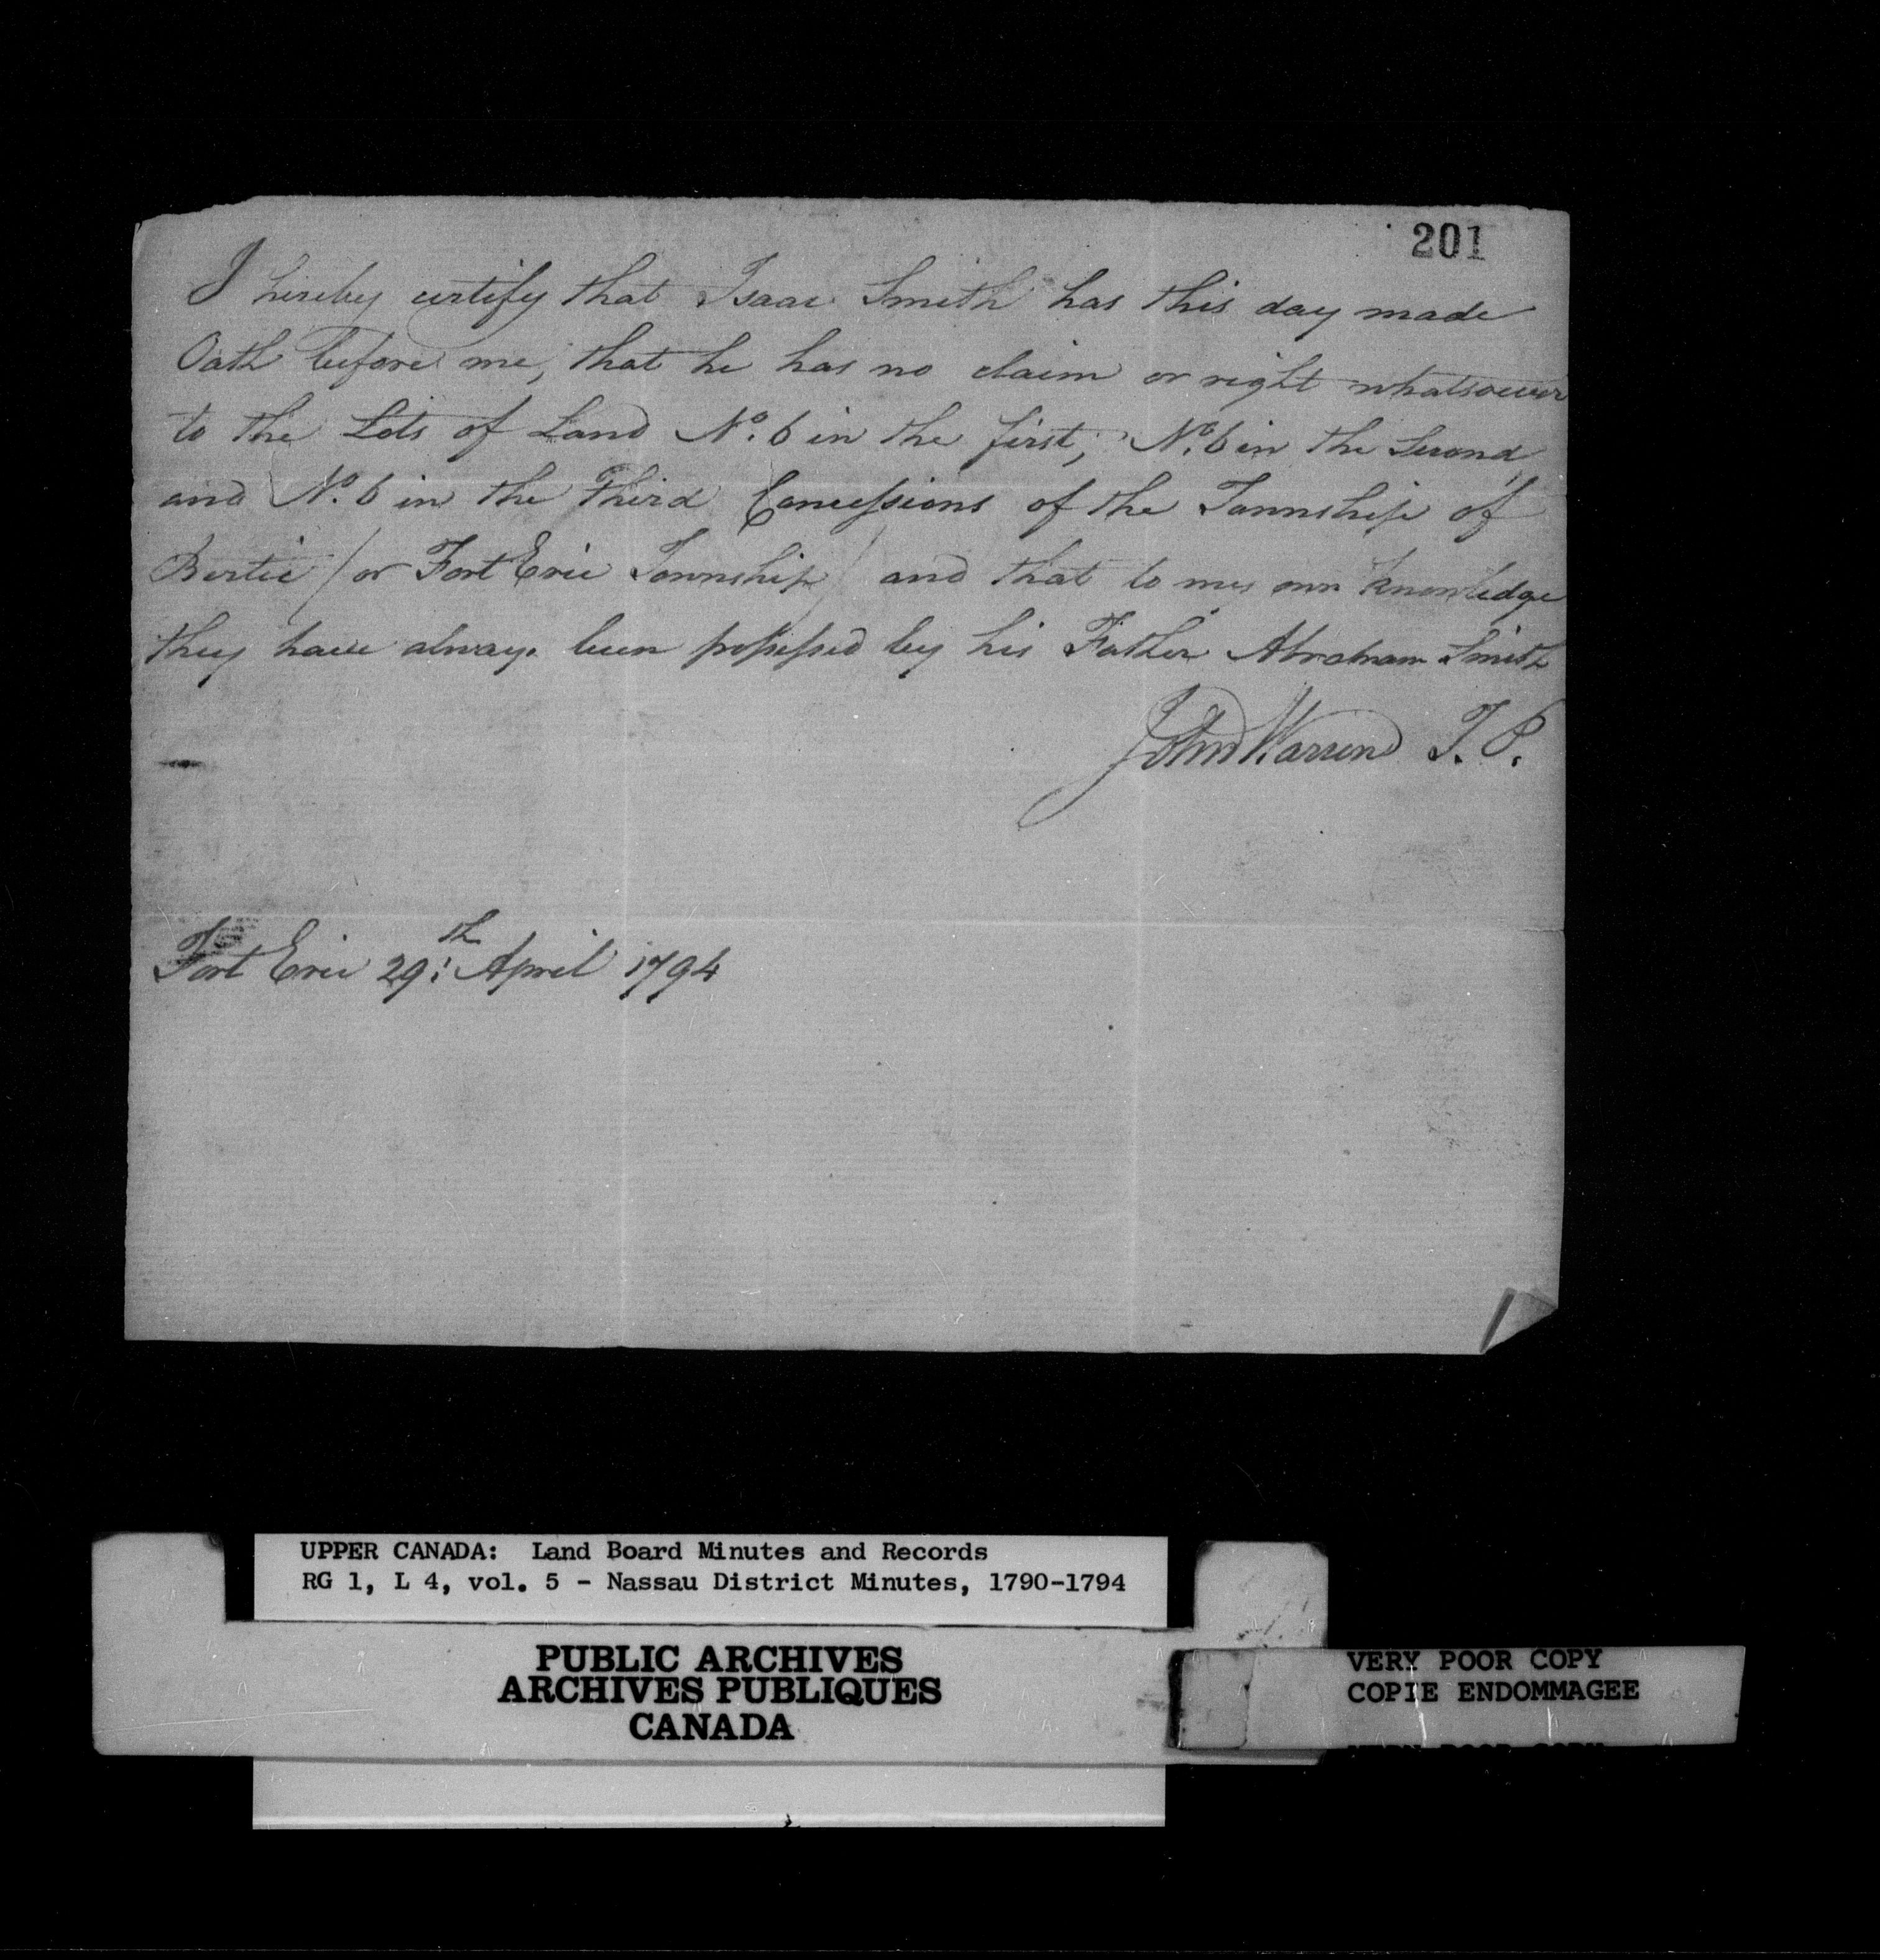 201
I hereby certify that Isaac Smith has this day made
Oath before me, that he has no claim or right whatsoever
to the Lots of Land No. 6 in the first, No. 6 in the Second
and No. 6 in the Third Concessions of the Township of
Bertie / or Fort Erie Township / and that to my own knowledge
they have always been possessed by his Father Abraham Smith
John Warren J. P.
Fort Erie 29th April 1794
UPPER CANADA: Land Board Minutes and Records
RG 1, L 4, vol. 5 - Nassau District Minutes, 1790-1794
PUBLIC ARCHIVES
ARCHIVES PUBLIQUES
CANADA
VERY POOR COPY
COPIE ENDOMMAGEE